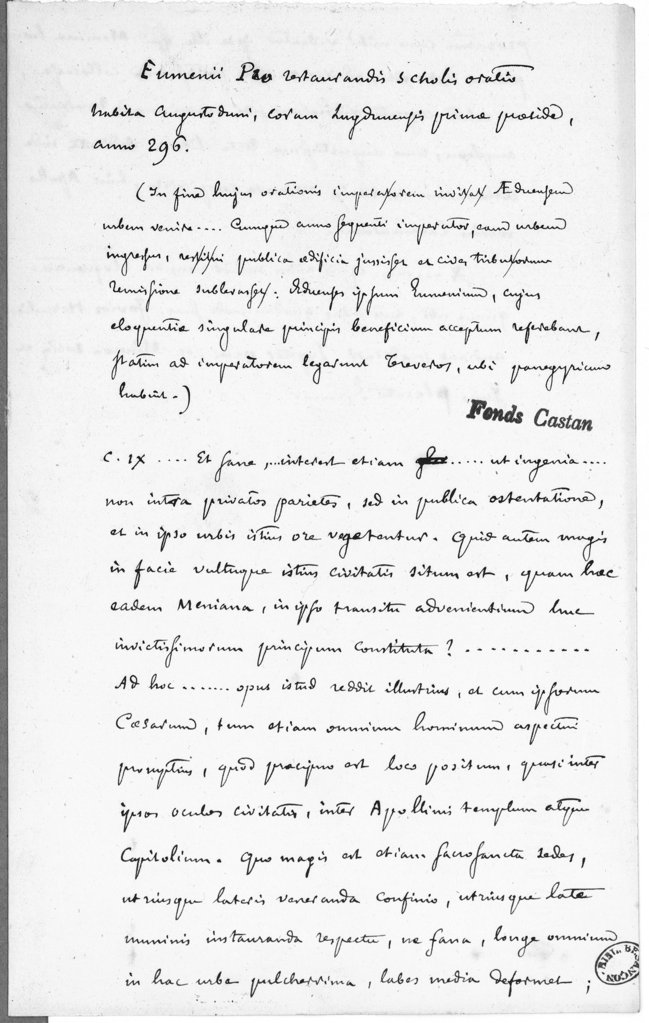 Eumenii Pro restaurandis scholis oratio
habita Augustoduni, coram Lugdunensis primæ præside,
anno 296.
(In fine hujus orationis imperatorem invitat Æduensem
urbem venire.... Cumque anno sequenti imperator, eam urbem
ingressus, restitui publica ædificia jussisset et cives tributorum
remissione sublevasset. Æduenses ipsum Eumenium, cujus
eloquentiæ singulare principis beneficium acceptum referebant,
statim ad imperatorem legarunt Treveros, ubi panegyricum
habuit.)
Fonds Castan
C. IX .... Et sane, ...interest etiam ..... ut ingenia ....
non intra privatos parietes, sed in publica ostentatione,
et in ipso urbis istius ore vegetentur. Quid autem magis
in facie vultuque istius civitatis situm est, quam hæc
eadem Meniana, in ipso transitu advenientium huc
invictissimorum principum constituta? ...........
Ad hoc ....... opus istud reddit illustrius, et cum ipsorum
Cæsarum, tum etiam omnium hominum aspectui
promptius, quod præcipuo est loco positum, quasi inter
ipsos oculos civitatis, inter Apollinis templum atque
Capitolium. Quo magis est etiam sacrosancta sedes,
utriusque lateris veneranda confinio, utriusque late
numinis instauranda respectu, ne fana, longe omnium
in hac urbe pulcherrima, labes media deformet ;
BIBL. BESANÇON